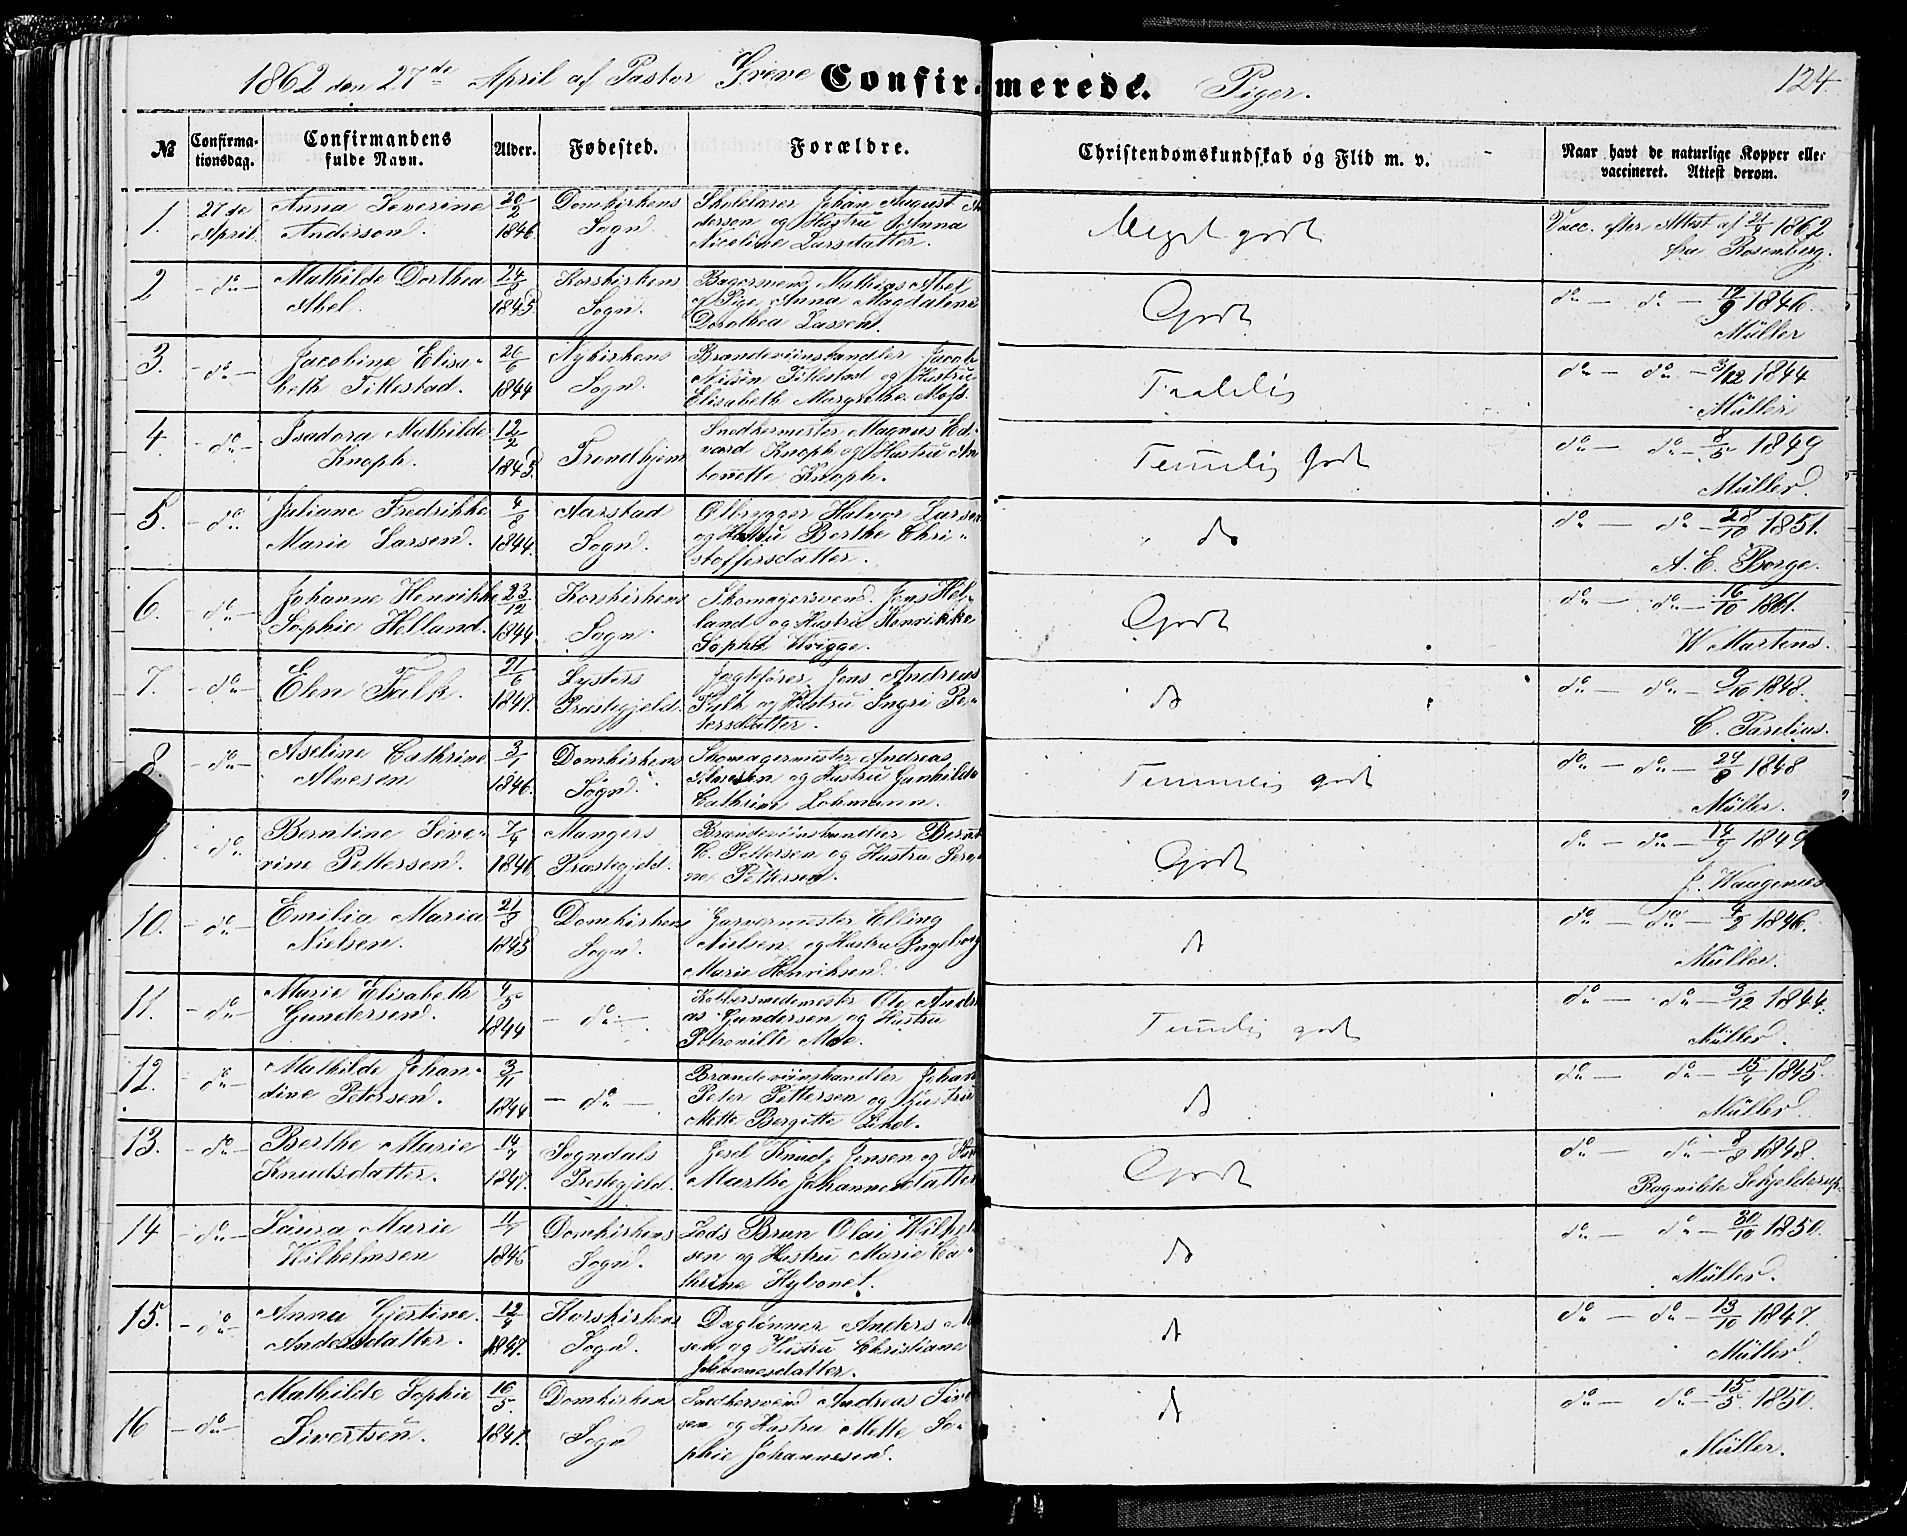 1862 den 27de April af Pastor Greve Confirmerede. Piger. 124
№ Confirma-tionsdag. Confirmandens fulde Navn. Alder. Fødested. Forældre. Christendomskundskab og Flid m. v. Naar havt de naturlige Kopper eller vaccineret. Attest derom.
1. 27de April Anna Severine Andersen. 20/2 1846. Domkirkens Sogn. Skolelærer Johan August An
dersen og Hustru Anna
Nicoline Larsdatter. Meget godt Vacc. efter Attest af 21/2 1862
fra Rosenberg.
2 - do - Mathilde Dorthea Abel. 24/8 1845. Korskirkens Sogn. Bagersvend Mathias Abel
og Pige Anna Magdalene
Dorothea Lassen. Godt do - do - 17/9 1846.
Müller
3. - do - Jacobine Elisa-
beth Tillestad. 26/6 1844 Nykirkens Sogn. Brændeviinshandler Jacob
Nilsen Tillestad og Hustru
Elisabeth Margrethe Moss. Taalelig do - do - 3/12 1844
Müller
4. - do - Isadora Mathilde
Knoph. 12/2 1845. Trondhjem Snedkermester Magnus Ed-
vard Knoph og Hustru An
tonette Knoph. Temelig godt do - do - 8/5 1849
Müller.
5. - do - Juliane Fredrikke
Marie Larsen. 4/8 1844. Aarstad Sogn. Ølbrygger Halvor Larsen
og Hustru Berthe Chri-
stoffersdatter. do do - do - 28/10 1851.
A. E. Borge.
6. - do - Johanne Henrikke
Sophie Helland. 23/12 1844. Korskirkens Sogn. Skomagersvend Jens Hel-
land og Hustru Henrikke
Sophie Wrigge. Godt do - do - 16/10 1861.
W Martens.
7. - do - Elen Falk. 21/6 1847. Lysters Præstegjeld. Jagtefører Jens Andreas
Falk og Hustru Ingri Pe-
tersdatter. do do - do - 9/10 1848.
C. Parelius.
8. - do - Aseline Cathrine
Alvesen 3/1 1846. Domkirkens Sogn. Skomagermester Andreas
Alvesen og Hustru Gunhilde
Cathrine Lohmann. Temmelig godt do - do - 24/8 1848
Müller.
do Berntine Seve-
rine Pettersen. 7/4 1846 Mangers Præstegjeld. Brændeviinshandler Bernt
C. Pettersen og Hustru Seri-
ne Pettersen. Godt do - do - 14/9 1849
J. Waagenes
10. - do - Emilia Maria
Nielsen. 21/8 1845 Domkirkens Sogn. Garvermester Elling
Nielsen og Hustru Ingeborg
Marie Henriksen. do do - do - 4/2 1846.
Müller.
11. - do - Marie Elisabeth
Gundersen. 4/5 1844 - do - Kobbersmedemester Ole Andre
as Gundersen og Hustru
Petronille Moe. Temelig godt do - do - 3/12 1844.
Müller.
12. - do - Mathilde Johan-
dine Petersen. 3/11 1844 - do - Brændeviinshandler Johan
Peter Pettersen og Hustru
Mette Bergitte Lind. do do - do - 15/4 1845.
Müller
13. - do - Berthe Marie
Knudsdatter. 14/7 1847. Sogndals Prestegjeld. Gesel Knud Jensen og Hus
Marthe Johannesdatter Godt do - do - 8/8 1848.
Ragnilde Schjelderup.
14 - do - Laura Marie
Wilhelmsen 11/7 1846 Domkirkens Sogn. Lods Brun Olai Wilhelm
sen og Hustru Marie Ca-
thrine Hybonet. do do - do - 30/10 1850.
Müller.
15. - do - Anna Gjertine
Andersdatter. 12/4 1847. Korskirkens Sogn. Daglønner Anders
sen og Hustru Christiane
Johannesdatter. do do - do - 13/10 1847.
Müller.
16 - do - Mathilde Sophie
Sivertsen. 16/5 1847. Domkirkens Sogn Snedkersvend Andreas Siver
sen og Hustru Mette So-
phie Johannesen. do do - do - 15/5 1850.
Müller.